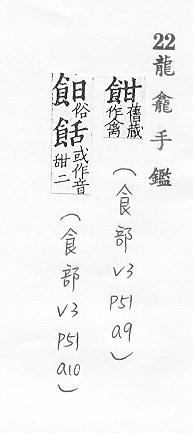 22 龍龕手鑑
舊藏作禽 (食部 V3 P51 a9)
俗餂或作音甜二 (食部 V3 P51 a10)